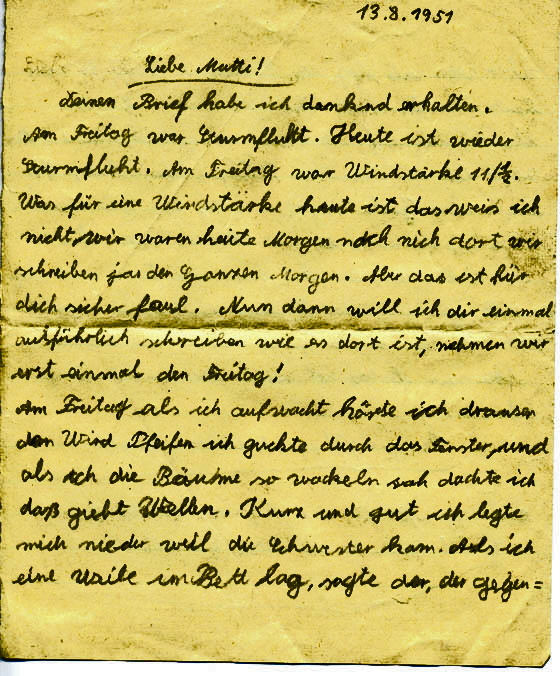 13.8.1951
Liebe Mutti!
Deinen Brief habe ich dankend erhalten.
Am Freitag war Sturmfluht. Heute ist wieder
Sturmfluht. Am Freitag war Windstärke 11/½.
Was für eine Windstärke heute ist das weis ich
nicht, wir waren heute Morgen noch nich dort wir
schreiben ja den Ganzen Morgen. Aber das ist für
dich sicher faul. Nun dann will ich dir einmal
ausführlich schreiben wie es dort ist, nehmen wir
erst einmal den Freitag!
Am Freitag als ich aufwacht hörte ich drausen
den Wind Pfeifen ich guchte durch das Fenster, und
als ich die Bäume so wackeln sah dachte ich
daß giebt Wellen. Kurz und gut ich legte
mich nieder weil die Schwester kam. Als ich
eine Weile im Bett lag, sagte der, der gegen=